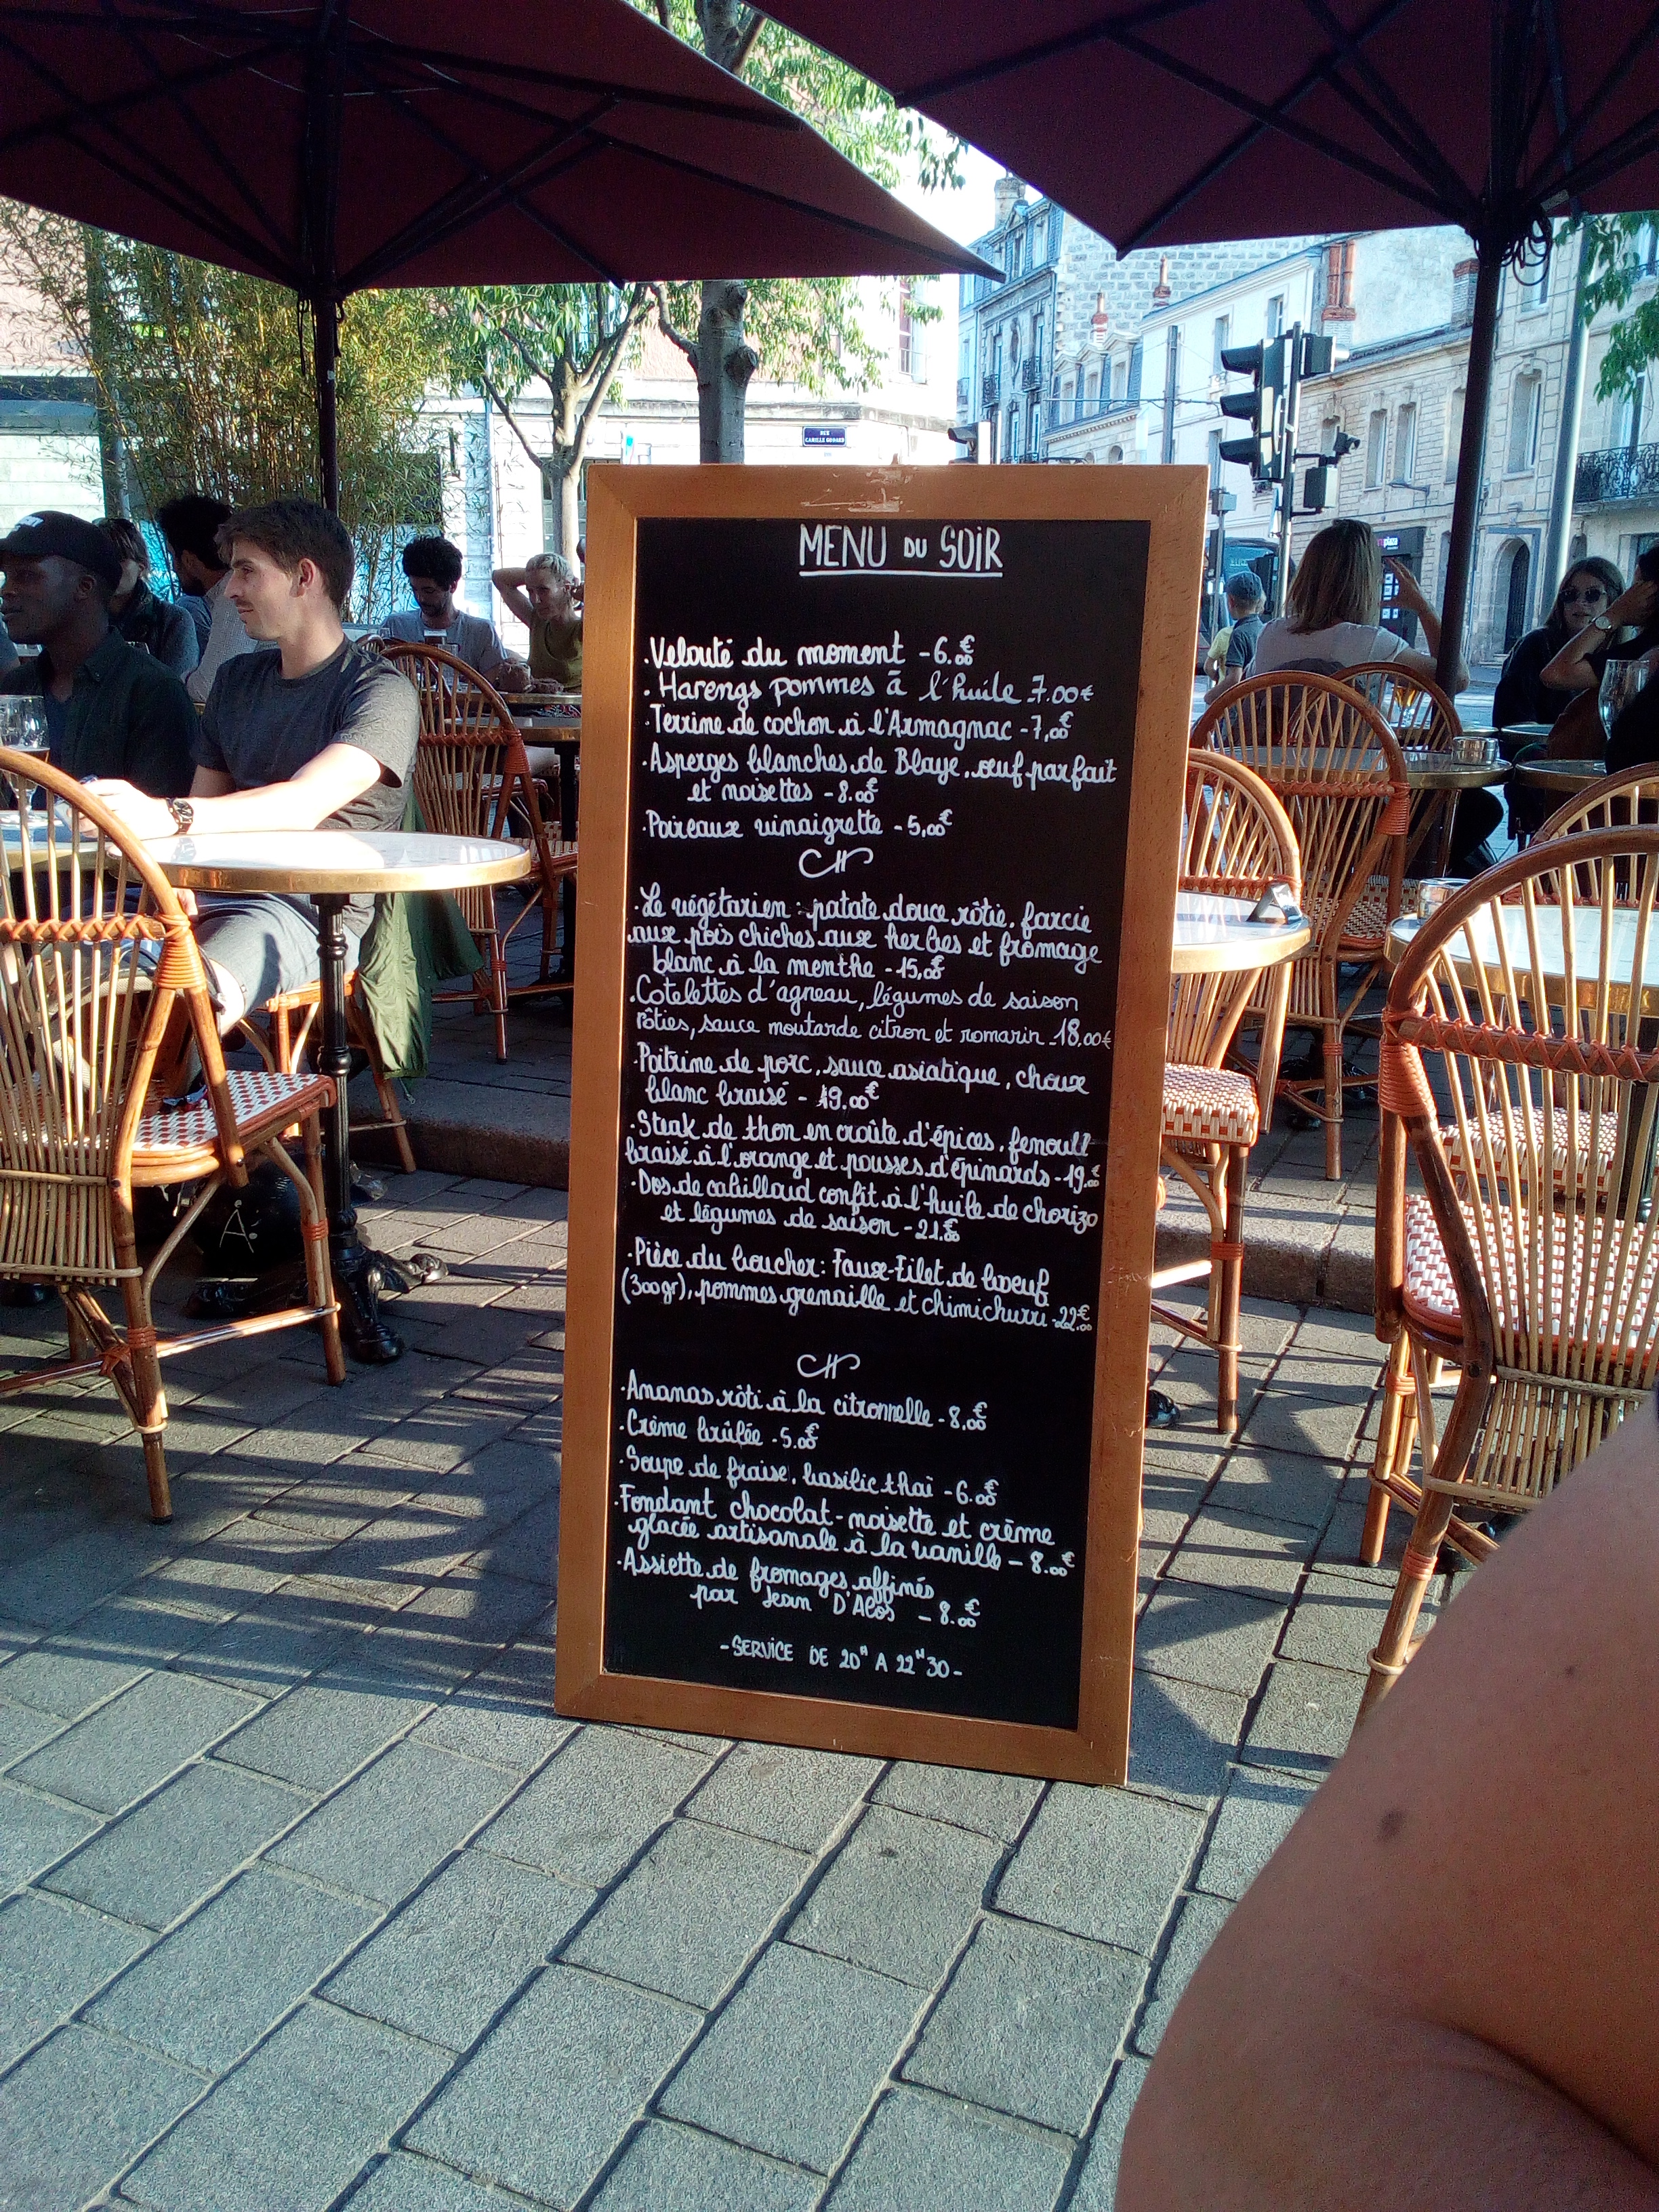 RUE
CAMILLE GODARD
MENU DU SOIR
.Velouté du moment - 6.00€
. Harengs pommes à l'huile _7.00€
.Terrine de cochon à l'Armagnac - 7,00€
.Asperges blanches de Blaye, oeuf parfait
et noisettes - 8.00€
.Poireaux vinaigrette - 5,00€
CH
.Le végétarien : patate douce rôtie, farcie
aux pois chiches aux herbes et fromage
blanc à la menthe - 15,00€
.Cotelettes d'agneau, légumes de saison
rôties, sauce moutarde citron et romarin _18.00€
.Poitrine de porc, sauce asiatique, choux
blanc braisé - 19.00€
.Steak de thon en croûte d'épices, fenouil
braisé à l'orange et pousses d'épinards - 19.00€
.Dos de cabillaud confit à l'huile de chorizo
et légumes de saison - 21.00€
.Pièce du boucher : Faux-Filet de boeuf
(300gr), pommes grenaille et chimichurri - 22.00€
CH
.Ananas rôti à la citronnelle - 8.00€
.Crème brûlée - 5.00€
.Soupe de fraise, basilic thaï - 6.00€
.Fondant chocolat-noisette et crème
glacée artisanale à la vanille - 8.00€
.Assiette de fromages affinés
par Jean D'Alos - 8.00€
- SERVICE DE 20H A 22H30 -